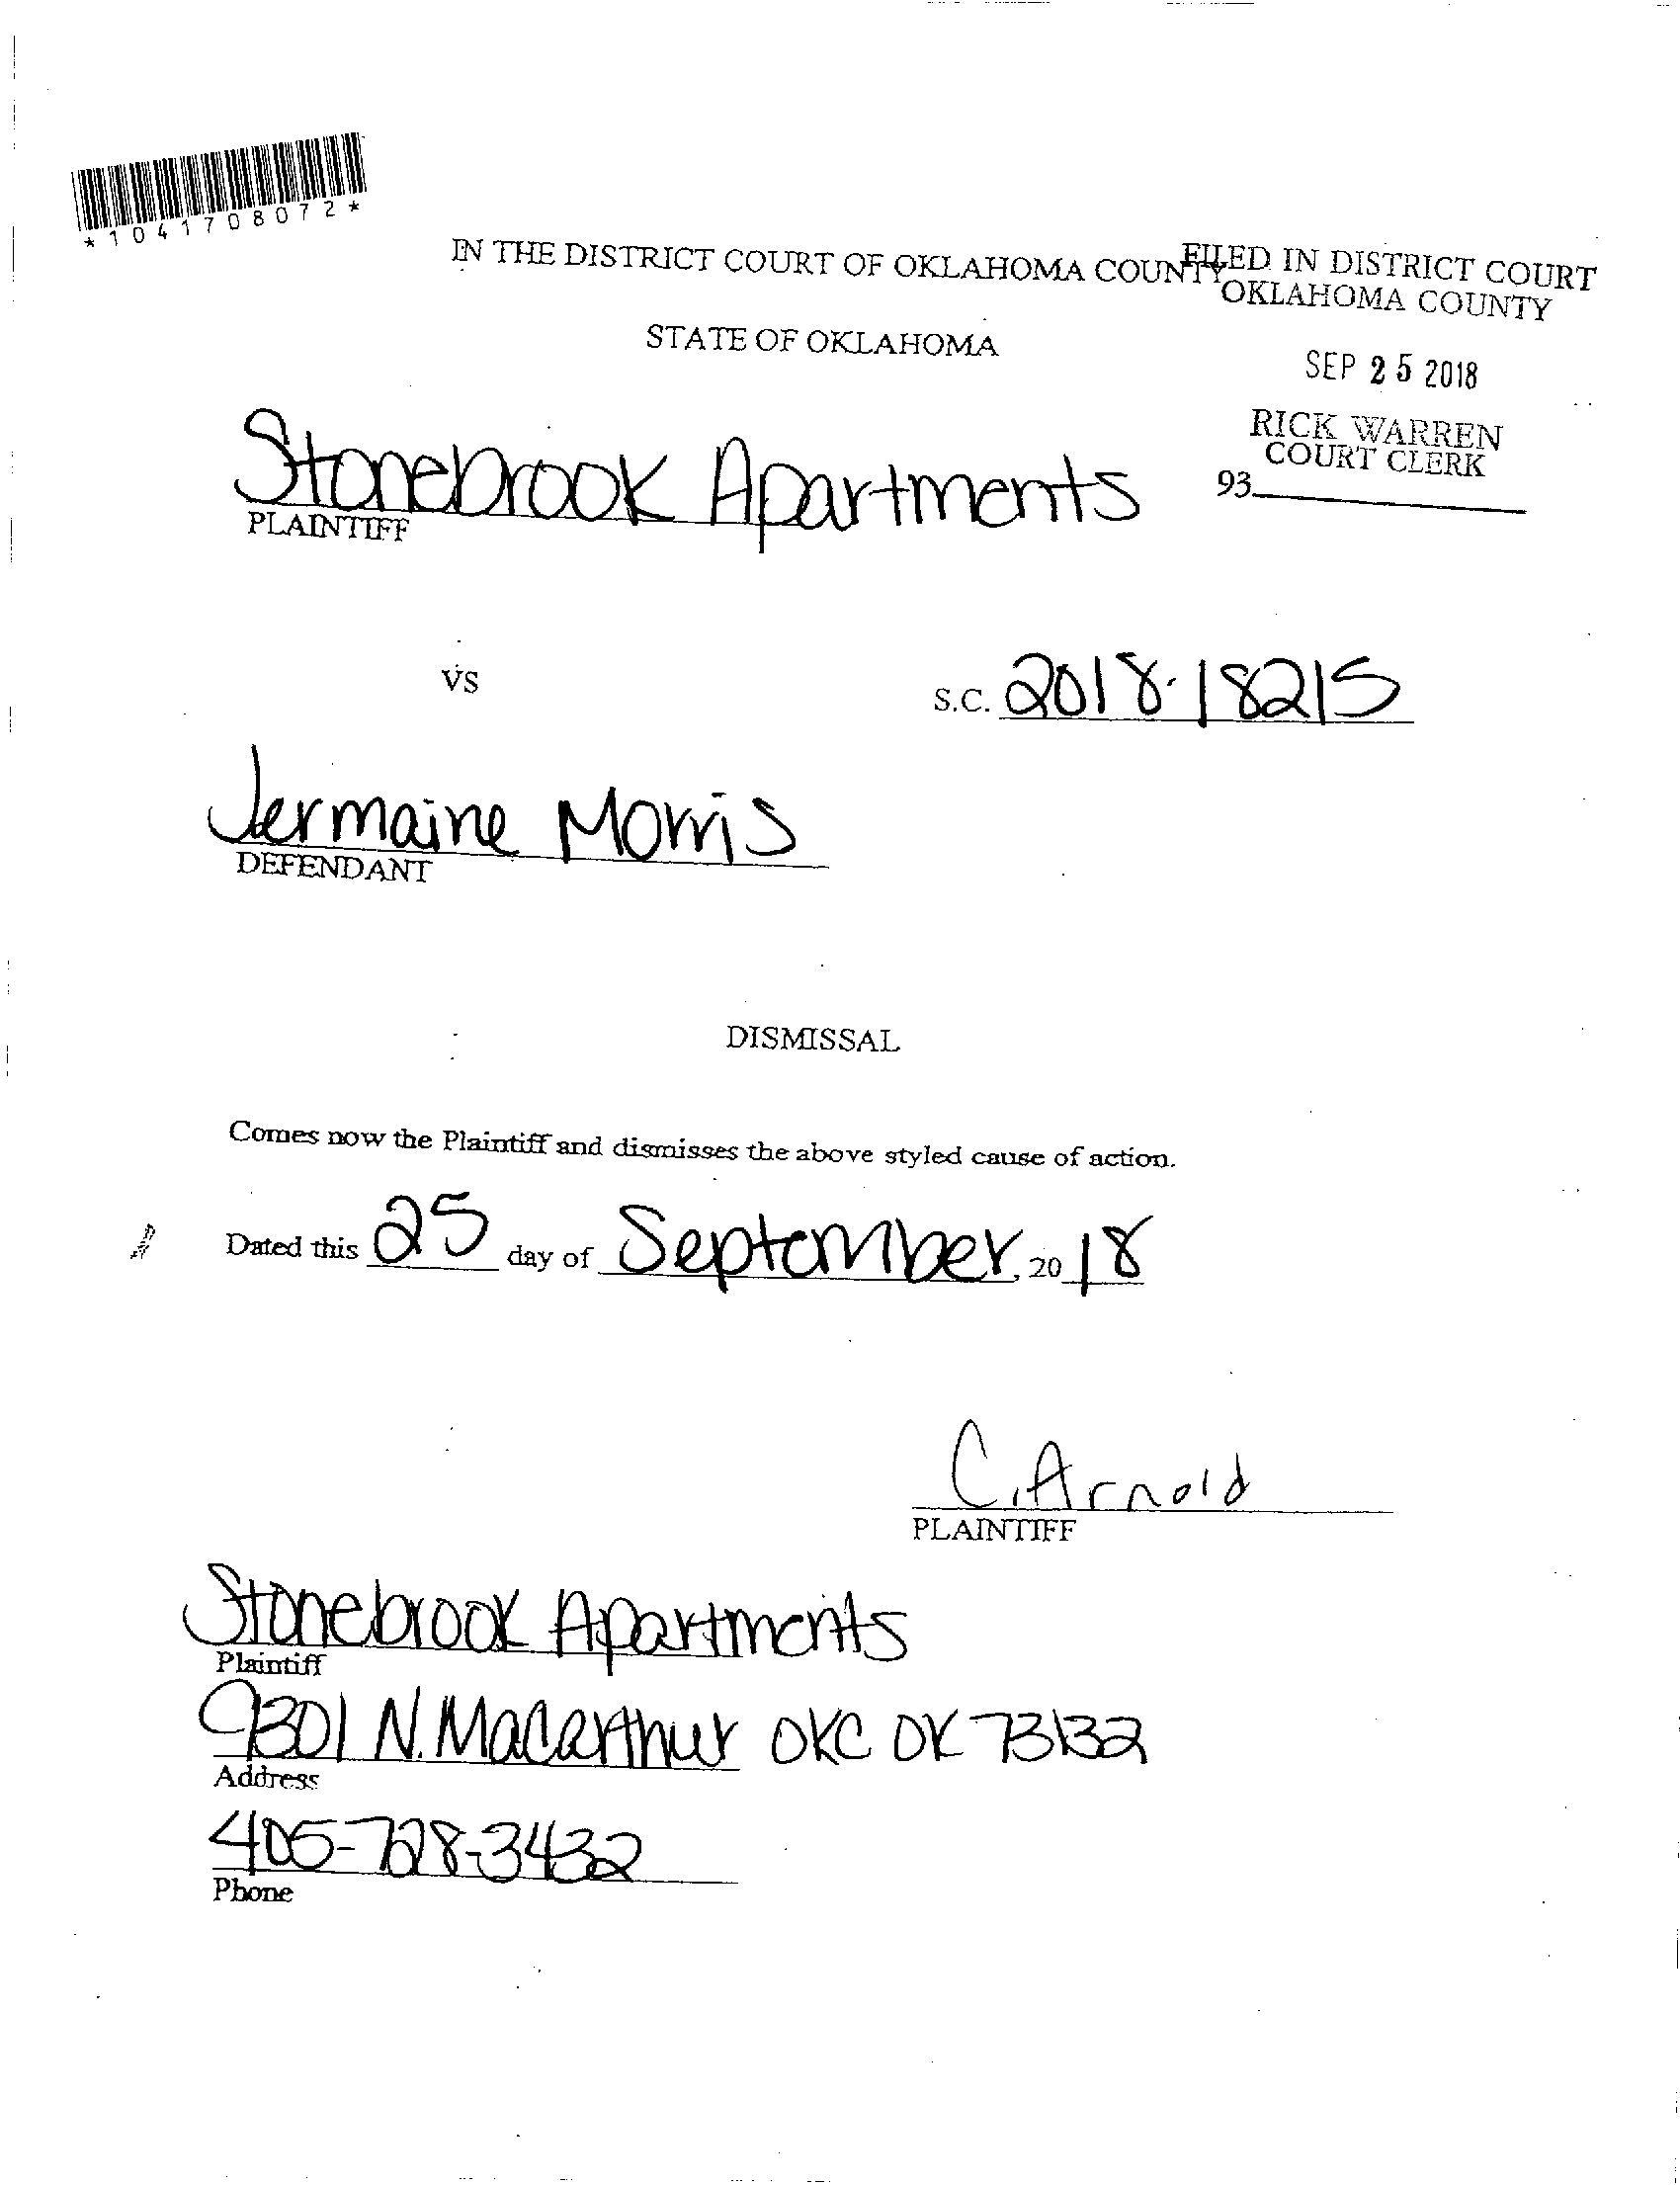 *1041708072*
IN THE DISTRICT COURT OF OKLAHOMA COUNTY
FILED IN DISTRICT COURT
OKLAHOMA COUNTY
STATE OF OKLAHOMA
SEP 25 2018
RICK WARREN
COURT CLERK
93
Stonebrook Apartments
PLAINTIFF
VS
S.C. 2018-18215
Jermaine Morris
DEFENDANT
DISMISSAL
Comes now the Plaintiff and dismisses the above styled cause of action.
Dated this 25 day of September, 20 18
C. Arnold
PLAINTIFF
Stonebrook Apartments
Plaintiff
9301 N. Macarthur OKC OK 73132
Address
405-728-3432
Phone